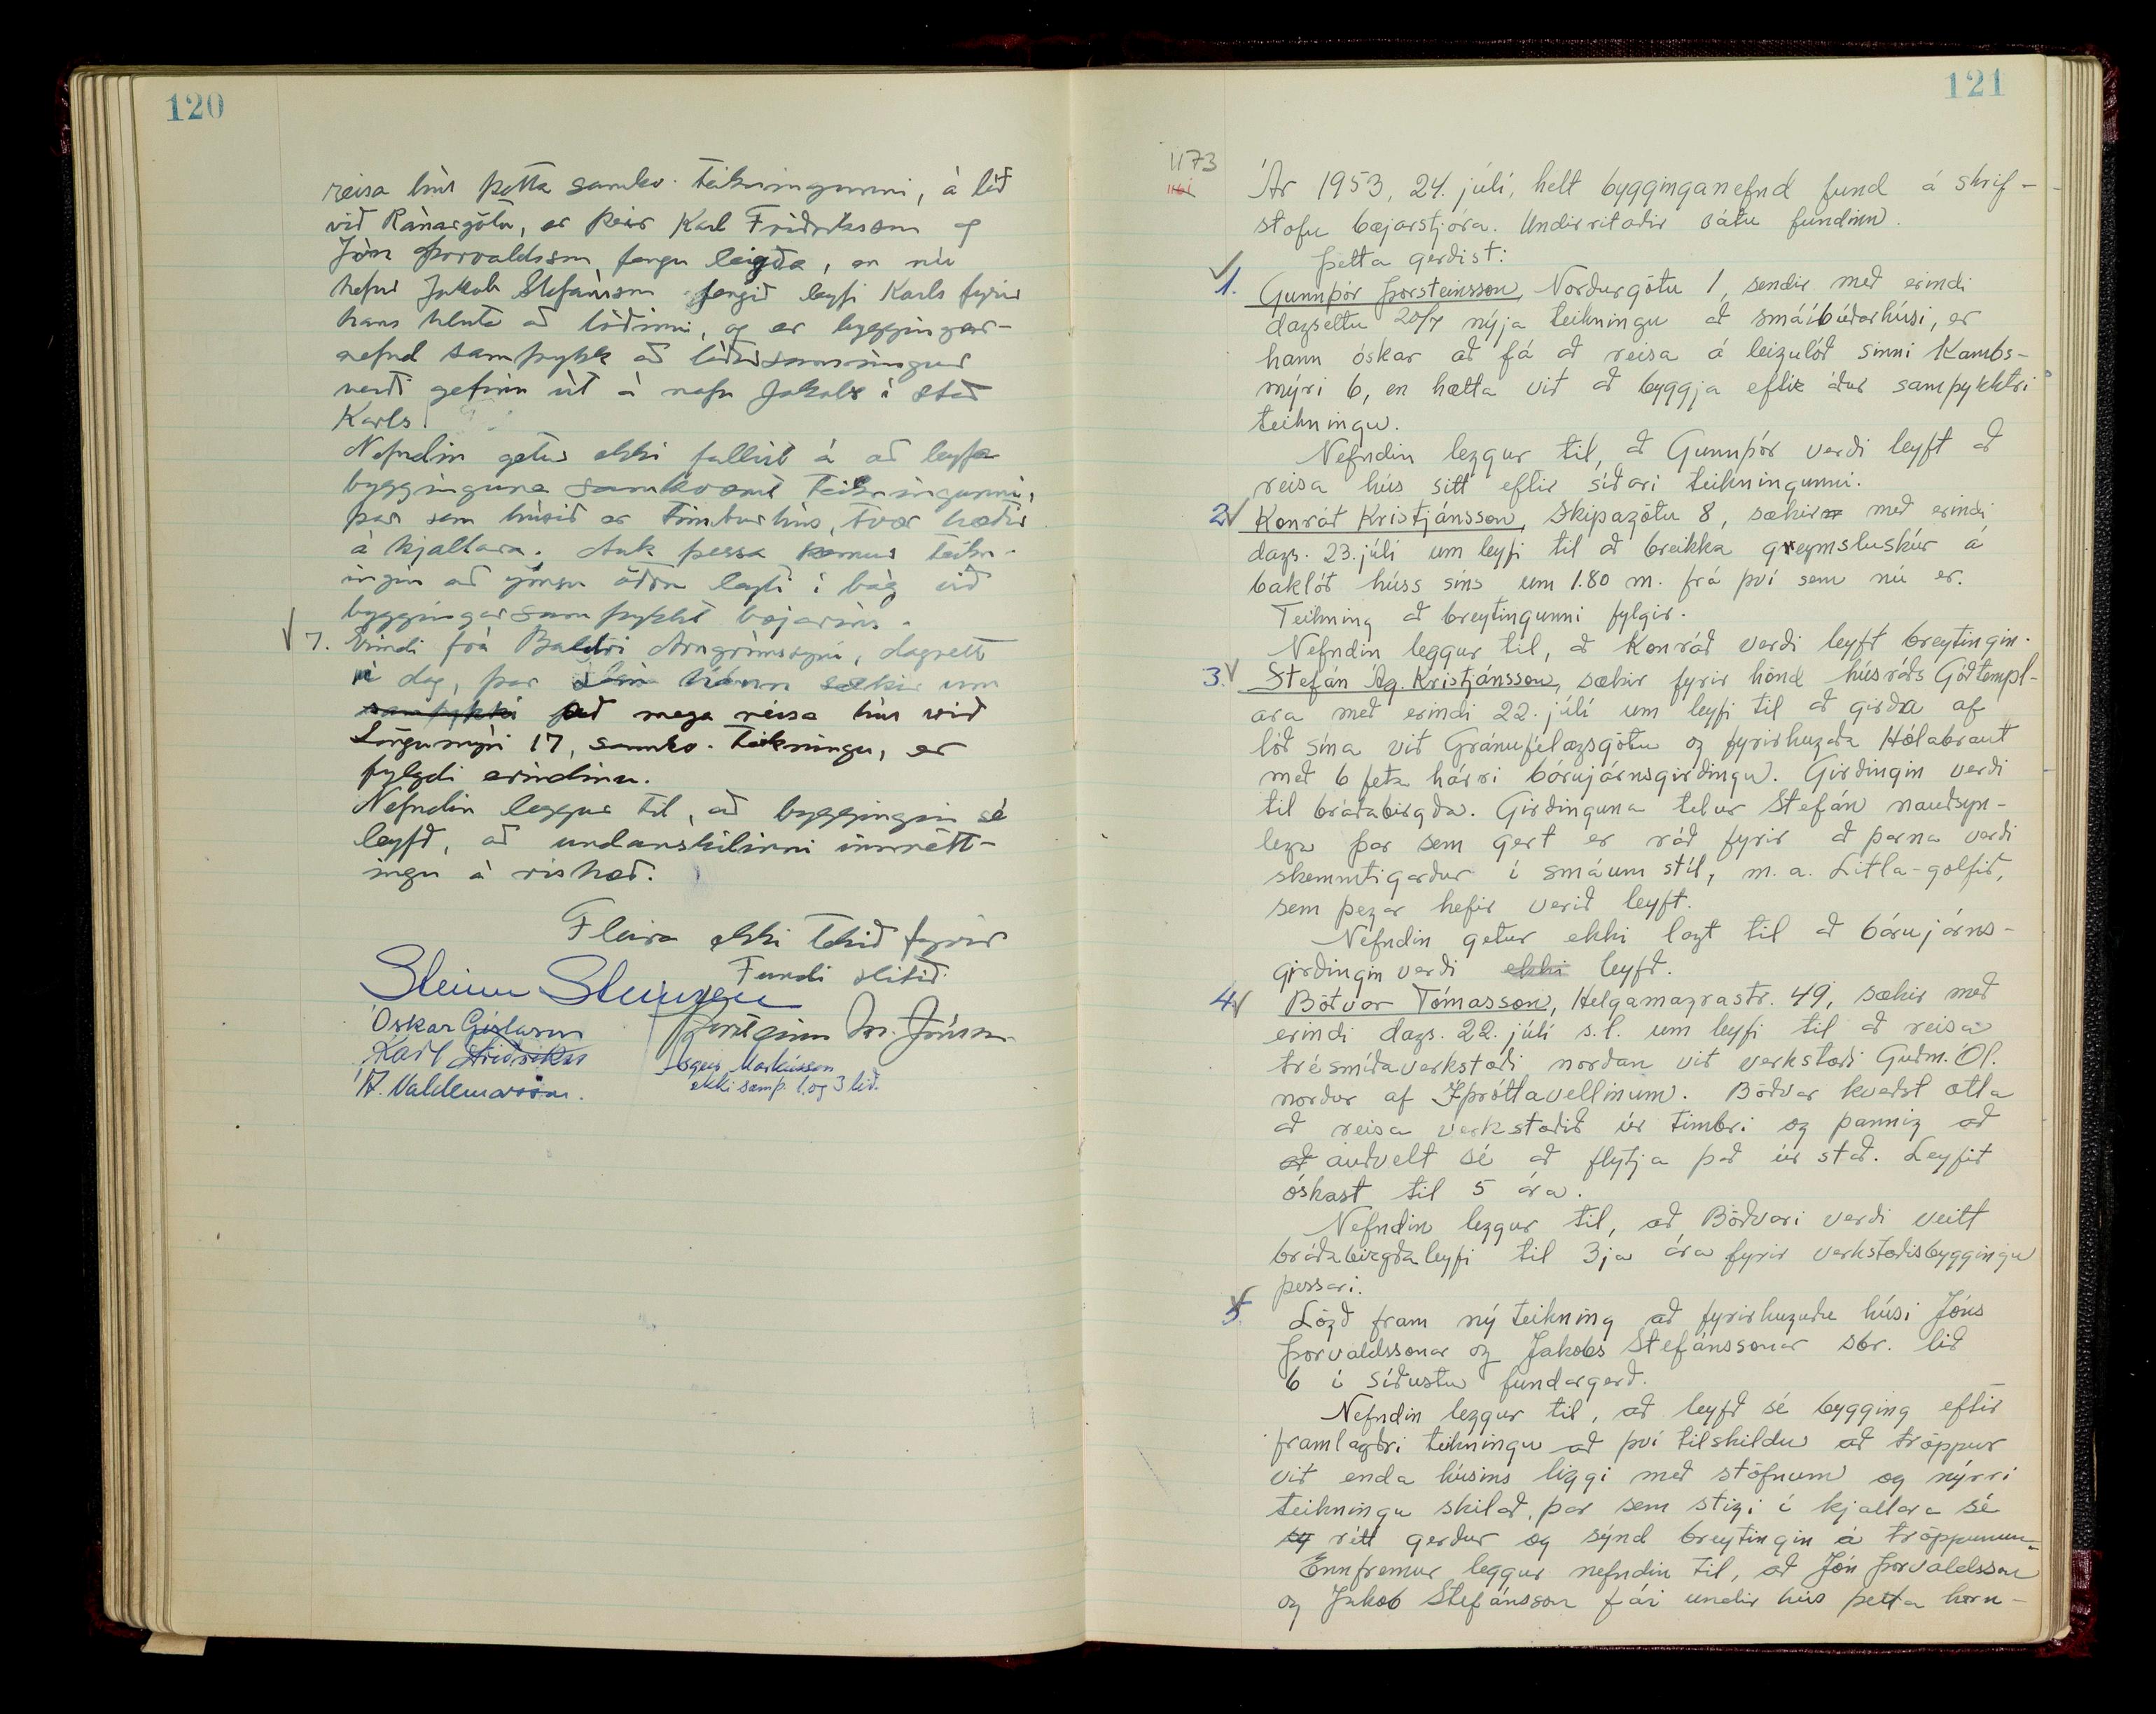 120
reisa hús þetta samkv. teikningunni, á lóð
við Ránargötu, er þeir Karl Friðriksson og
Jón Þorvaldsson fengu leigða, en nú
hefur Jakob Stefánsson fengið leyfi Karls fyrir
hans hluta að lóðinni, og er byggingar-
nefnd samþykk að lóðarsamningur
verði gefinn út á nafn Jakobs í stað
Karls.
Nefndin getur ekki fallist á að leyfa
bygginguna samkvæmt teikningunni,
þar sem húsið er timburhús, tvær hæðir
á kjallara. Auk þessa kemur teikn-
ingin að ýmsu öðru leyti í bág við
byggingarsamþykkt bæjarins.
7. Erindi frá Baldri Arngrímssyni, dagsett
í dag, þar hann sækir um
samþykki að mega reisa hús við
Löngumýri 17, samkv. teikningu, er
fylgdi erindinu.
Nefndin leggur til, að byggingin sé
leyfð, að undanskilinni innrétt-
ingu á rishæð.
Fleira ekki tekið fyrir
Fundi slitið.
Steinn Steinsen
Óskar Gíslason
Karl Friðriksson
Þorsteinn M. Jónsson
Ásgeir Markússon
ekki samþ. 1. og 3 lið.
Á. Valdemarsson.
121
1173
1161
Ár 1953, 24. júlí, helt bygginganefnd fund á skrif-
stofu bæjarstjóra. Undirritaðir sátu fundinn.
Þetta gerðist:
1. Gunnþór Þorsteinsson, Norðurgötu 1, sendir með erindi
dagsettu 20/7 nýja teikningu að smáíbúðarhúsi, er
hann óskar að fá að reisa á leigulóð sinni Kambs-
mýri 6, en hætta við að byggja eftir áður samþykktri
teikningu.
Nefndin leggur til, að Gunnþór verði leyft að
reisa hús sitt eftir síðari teikningunni.
2. Konráð Kristjánsson, Skipagötu 8, sækir með erindi
dags. 23. júlí um leyfi til að breikka geymsluskúr á
baklóð húss síns um 1.80 m. frá því sem nú er.
Teikning að breytingunni fylgir.
Nefndin leggur til, að Konráð verði leyft breytingin.
3. Stefán Ág. Kristjánsson, sækir fyrir hönd húsráðs Góðtempl-
ara með erindi 22. júlí um leyfi til að girða af
lóð sína við Gránufélagsgötu og fyrirhugaða Hólabraut
með 6 feta hárri bárujárnsgirðingu. Girðingin verði
til bráðabirgða. Girðinguna telur Stefán nauðsyn-
lega þar sem gert er ráð fyrir að þarna verði
skemmtigarður í smáum stíl, m.a. Litla-golfið,
sem þegar hefir verið leyft.
Nefndin getur ekki lagt til að bárujárns-
girðingin verði ekki leyfð.
4. Böðvar Tómasson, Helgamagrastr. 49, sækir með
erindi dags. 22. júlí s.l. um leyfi til að reisa
trésmíðaverkstæði norðan við verkstæði Guðm. Ól.
norður af Íþróttavellinum. Böðvar kveðst ætla
að reisa verkstæðið úr timbri og þannig að
að auðvelt sé að flytja það úr stað. Leyfið
óskast til 5 ára.
Nefndin leggur til, að Böðvari verði veitt
bráðabirgðaleyfi til 3ja ára fyrir verkstæðisbyggingu
þessari.
5. Lögð fram ný teikning að fyrirhuguðu húsi Jóns
Þorvaldssonar og Jakobs Stefánssonar sbr. lið
6 í síðustu fundargerð.
Nefndin leggur til, að leyfð sé bygging eftir
framlagðri teikningu að því tilskildu að tröppur
við enda húsins liggi með stöfnum og nýrri
teikningu skilað, þar sem stigi í kjallara sé
og rétt gerður og sýnd breytingin á tröppunum.
Ennfremur leggur nefndin til, að Jón Þorvaldsson
og Jakob Stefánsson fái undir hús þetta horn-